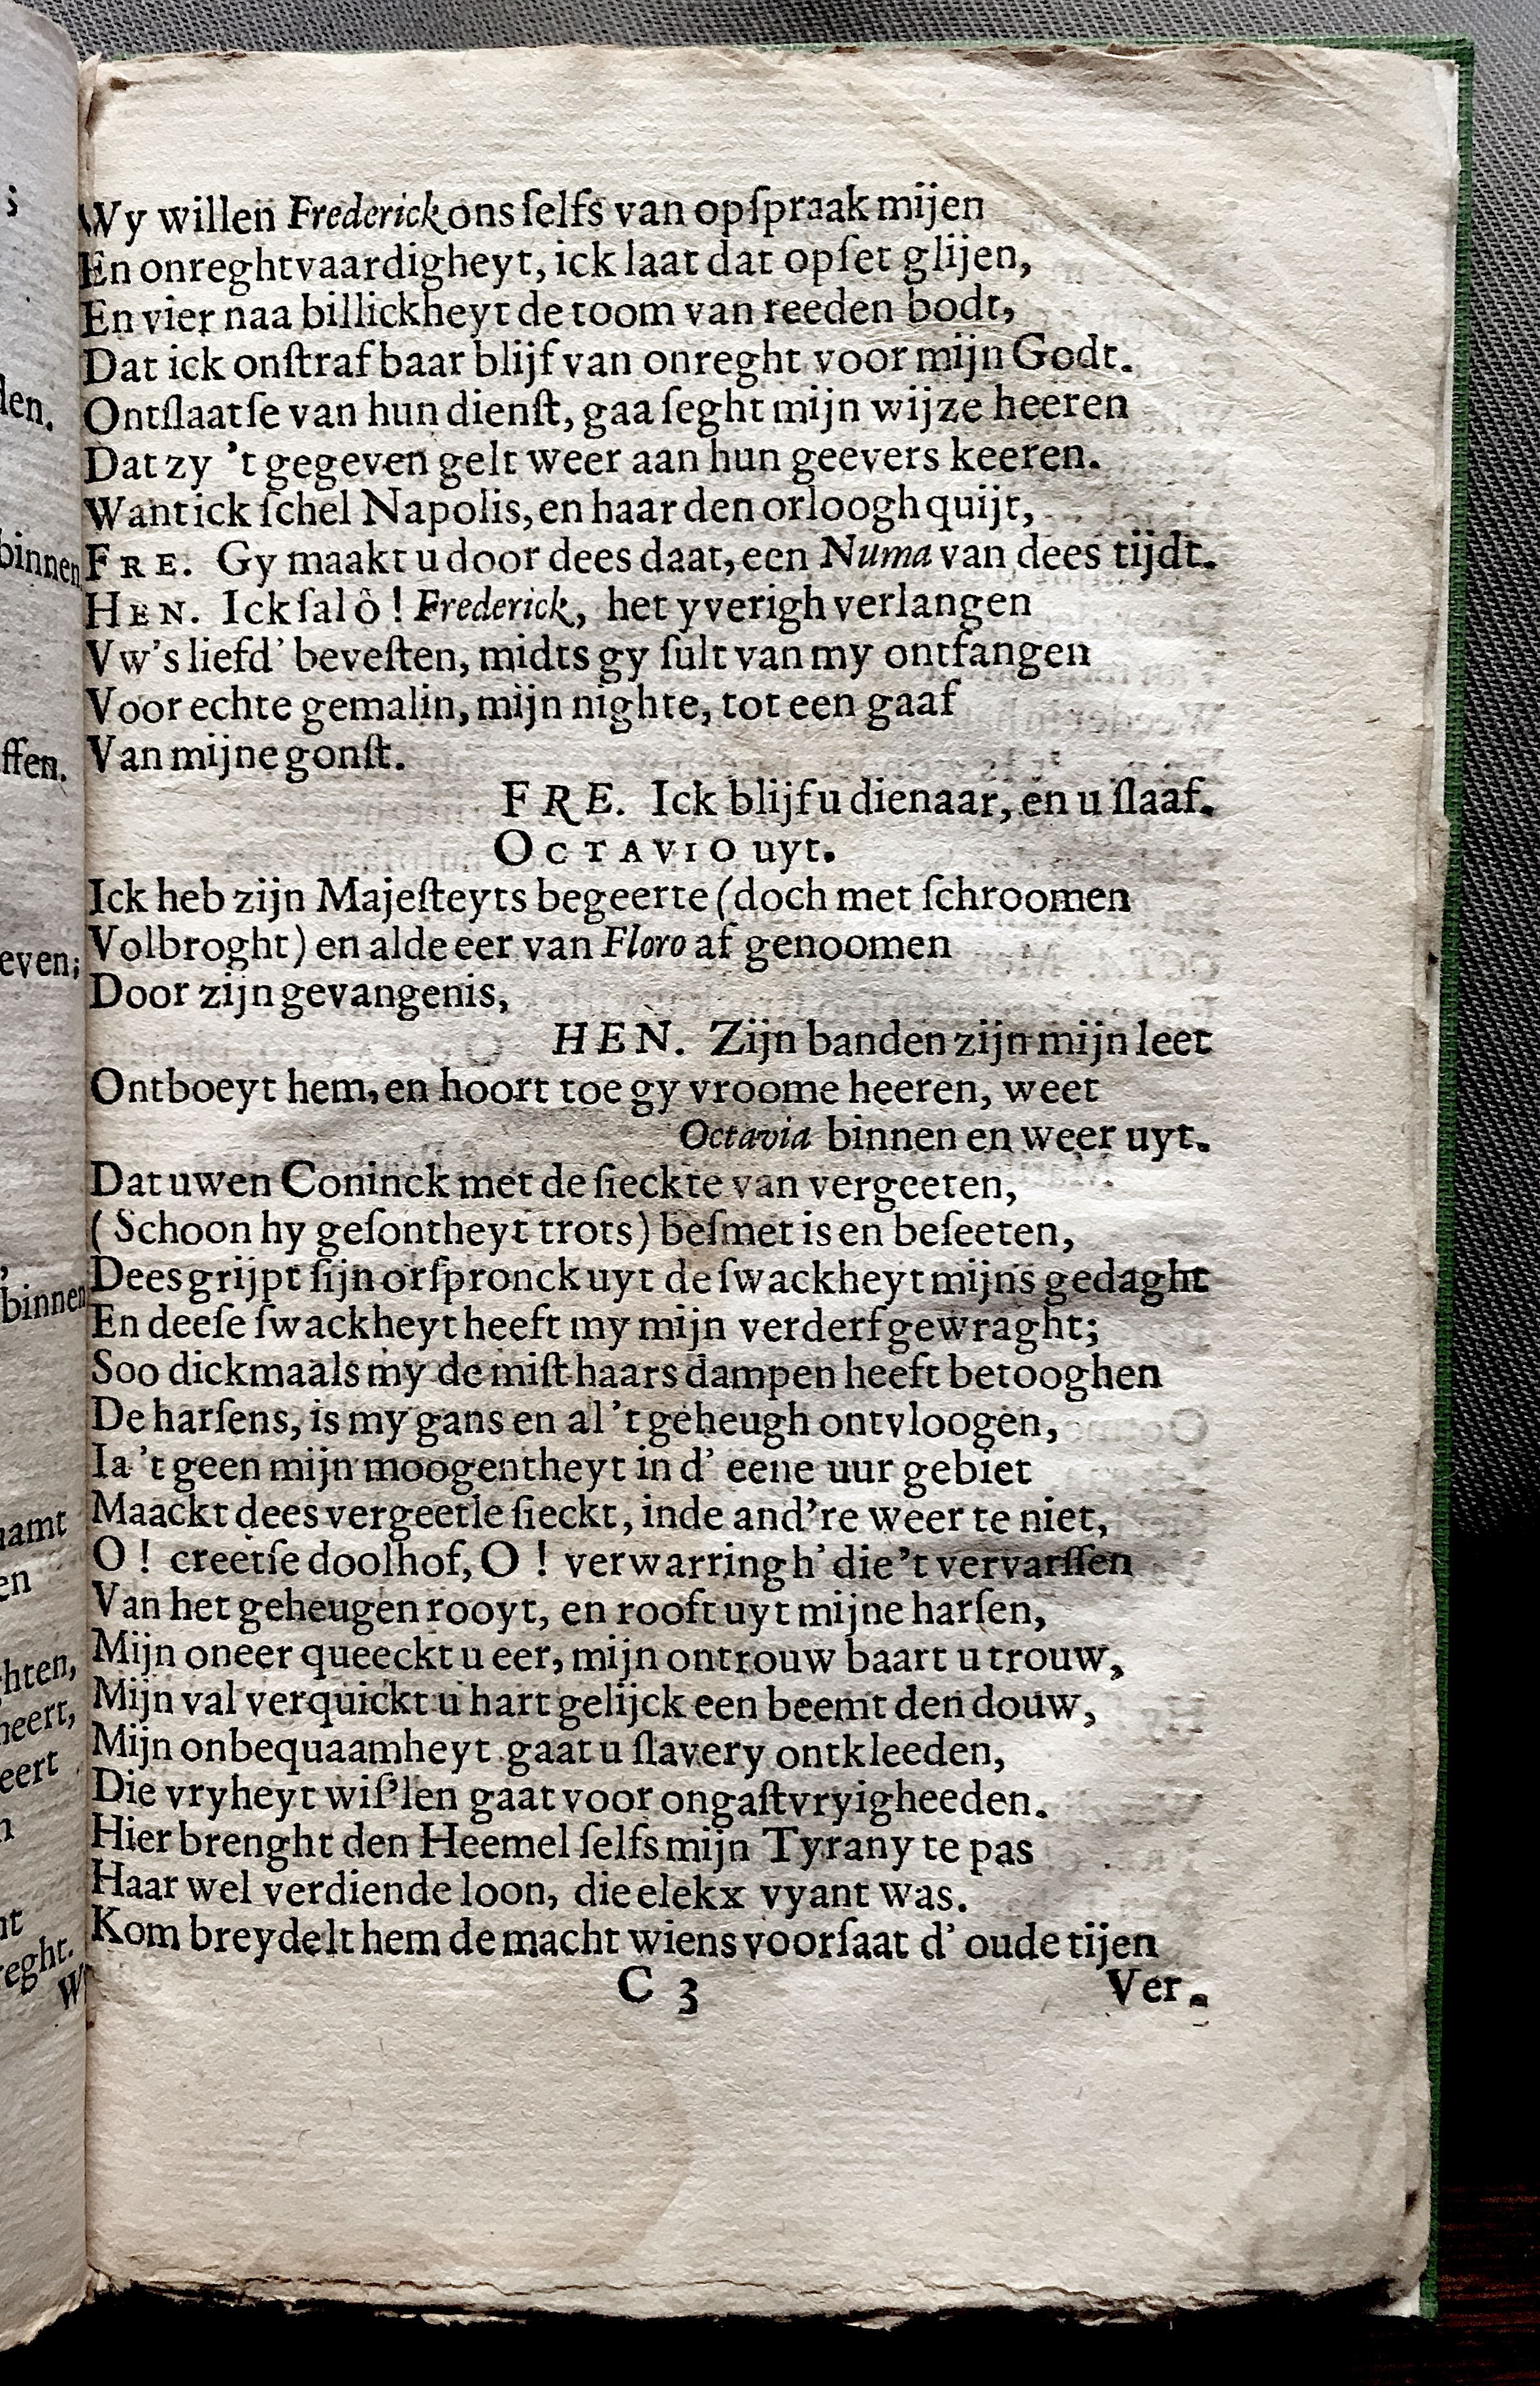 Wy willen Frederick ons ſelfs van opſpraak mijen
En onreghtvaardigheyt, ick laat dat opſet glijen,
En vier naa billickheyt de toom van reeden bodt,
Dat ick onſtrafbaar blijf van onreght voor mijn Godt.
Ontſlaatſe van hun dienſt, gaa ſeght mijn wijze heeren
Dat zy 't gegeven gelt weer aan hun geevers keeren.
Want ick ſchel Napolis, en haar den orloogh quijt,
FRE. Gy maakt u door dees daat, een Numa van dees tijdt.
HEN. Ick ſal ô! Frederick, het yverigh verlangen
Vw's liefd' beveſten, midts gy ſult van my ontfangen
Voor echte gemalin, mijn nighte, tot een gaaf
Van mijne gonſt.
FRE. Ick blijf u dienaar, en u ſlaaf.
OCTAVIO uyt.
Ick heb zijn Majeſteyts begeerte (doch met ſchroomen
Volbroght) en al de eer van Floro af genoomen
Door zijn gevangenis,
HEN. Zijn banden zijn mijn leet
Ontboeyt hem, en hoort toe gy vroome heeren, weet
Octavia binnen en weer uyt.
Dat uwen Coninck met de ſieckte van vergeeten,
(Schoon hy geſontheyt trots) beſmet is en beſeeten,
Dees grijpt ſijn orſpronck uyt de ſwackheyt mijns gedaght
En deeſe ſwackheyt heeft my mijn verderf gewraght;
Soo dickmaals my de miſt haars dampen heeft betooghen
De harſens, is my gans en al 't geheugh ontvloogen,
Ia 't geen mijn moogentheyt in d' eene uur gebiet
Maackt dees vergeetle ſieckt, inde and're weer te niet,
O! creetſe doolhof, O! verwarringh' die 't vervarſſen
Van het geheugen rooyt, en rooft uyt mijne harſen,
Mijn oneer queeckt u eer, mijn ontrouw baart u trouw,
Mijn val verquickt u hart gelijck een beemt den douw,
Mijn onbequaamheyt gaat u ſlavery ontkleeden,
Die vryheyt wiſ'len gaat voor ongaſtvryigheeden.
Hier brenght den Heemel ſelfs mijn Tyrany te pas
Haar wel verdiende loon, die elekx vyant was.
Kom breydelt hem de macht wiens voorſaat d' oude tijen
C 3 Ver-